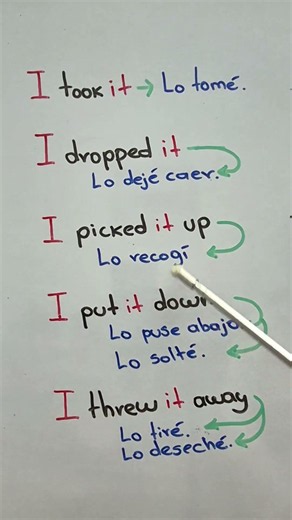 I took it → Lo tomé.
I dropped it
Lo dejé caer.
I picked it up
Lo recogí
I put it down
Lo puse abajo
Lo solté.
I threw it away
Lo tiré.
Lo deseché.